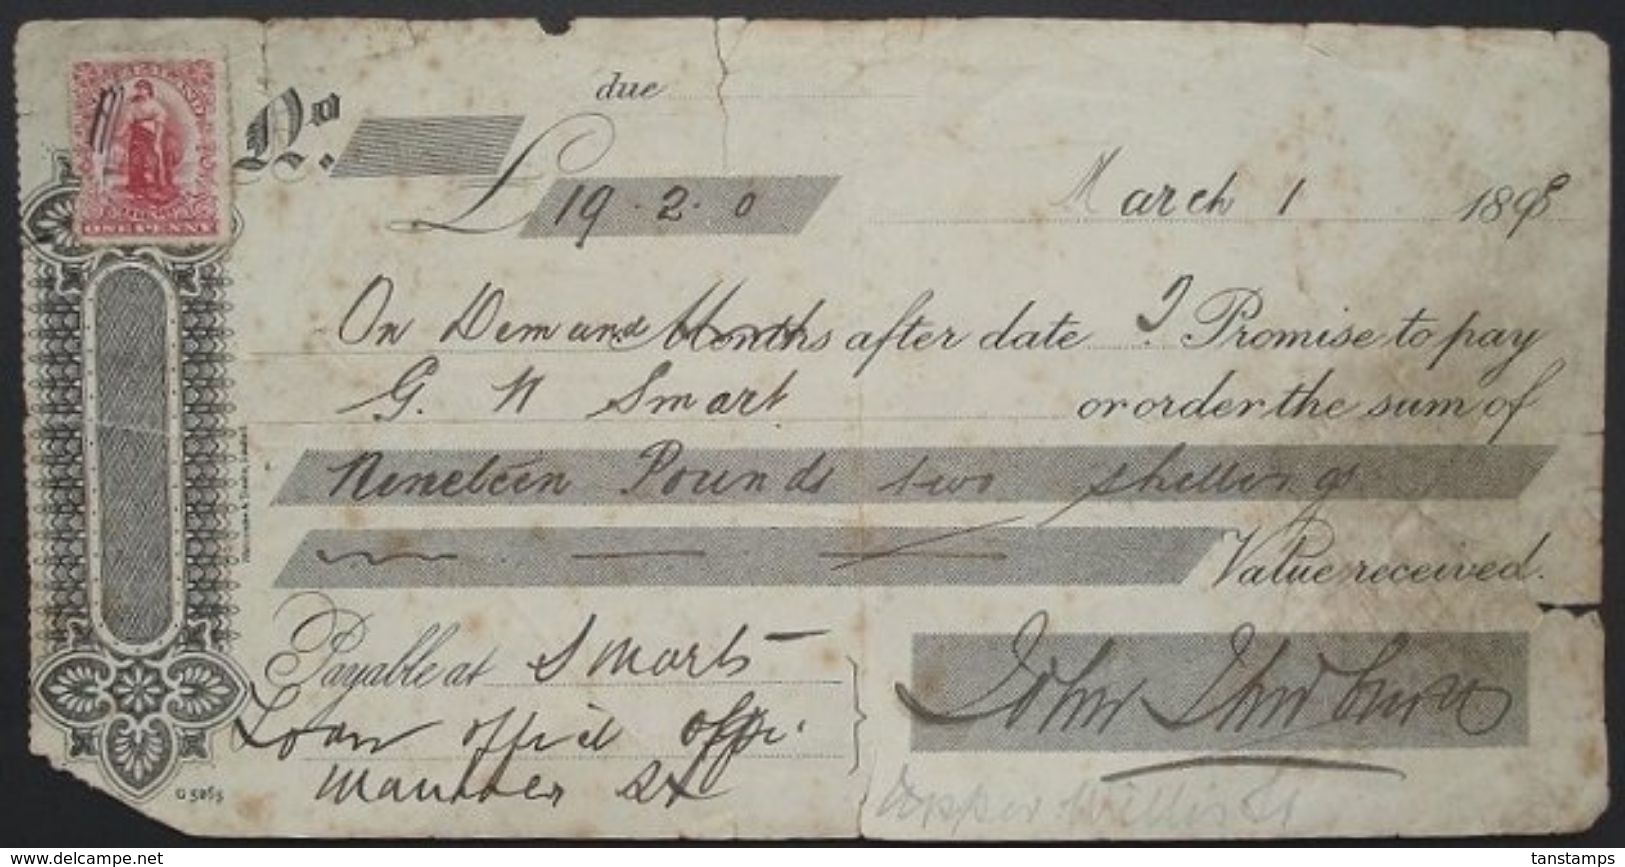 ONE PENNY
No.
due
£ 19 . 2 . 0
March 1 1898
On Demand Months after date I Promise to pay
G. N Smart or order the sum of
Nineteen Pounds two shillings
Value received.
Payable at Smarts
Loan office opp.
Manners St
John
Upper Willis St
G 5263
tanstamps